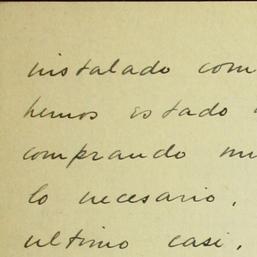 instalado com
hemos estado
comprando mu
lo necesario,
ultimo casi,